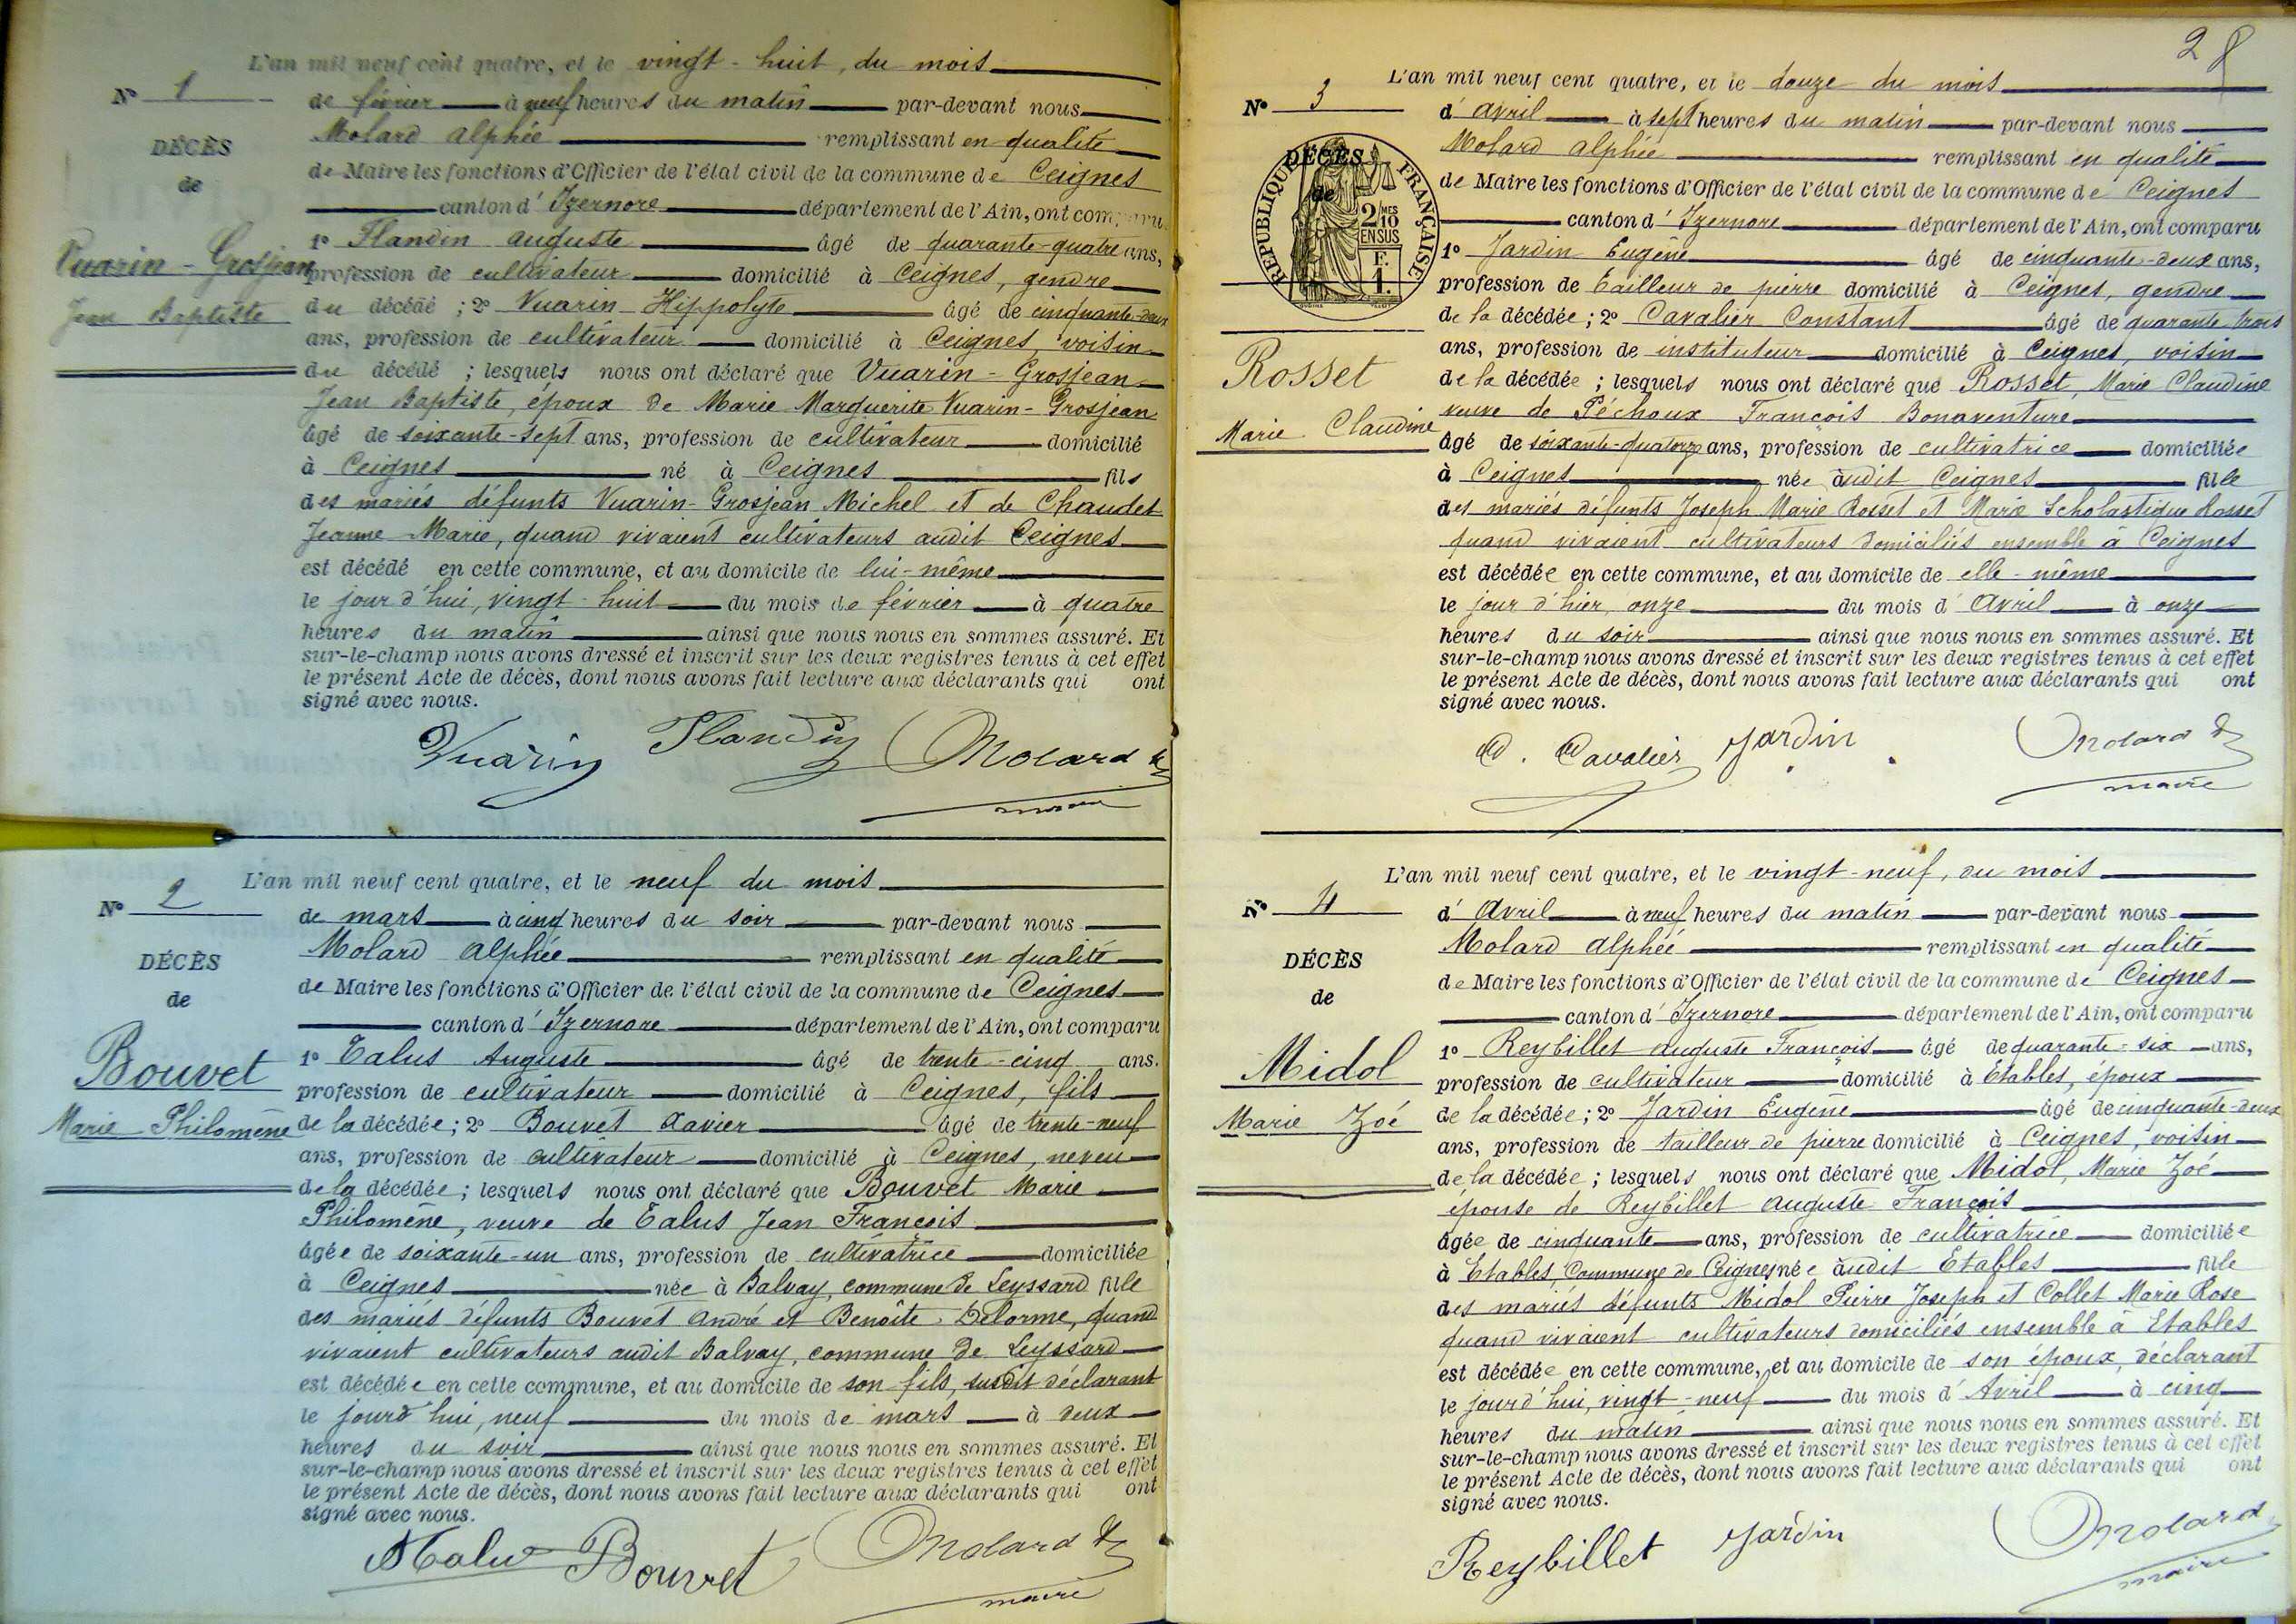 L'an mil neuf cent quatre, et le vingt-huit, du mois
N° 1
de février à neuf heures du matin par-devant nous
Molard Alphée remplissant en qualité
DÉCÈS
de Maire les fonctions d'Officier de l'état civil de la commune de Ceignes
de
canton d'Izernore département de l'Ain, ont comparu
1° Flandin Auguste âgé de quarante-quatre ans,
Vuarin-Grosjean
profession de cultivateur domicilié à Ceignes, gendre
Jean Baptiste
du décédé ; 2° Vuarin Hippolyte âgé de cinquante-deux
ans, profession de cultivateur domicilié à Ceignes, voisin
du décédé ; lesquels nous ont déclaré que Vuarin-Grosjean
Jean Baptiste, époux de Marie Marguerite Vuarin-Grosjean
âgé de soixante-sept ans, profession de cultivateur domicilié
à Ceignes né à Ceignes fils
des mariés défunts Vuarin-Grosjean Michel et de Chaudet
Jeanne Marie, quand vivaient cultivateurs audit Ceignes
est décédé en cette commune, et au domicile de lui-même
le jour d'hui, vingt-huit du mois de février à quatre
heures du matin ainsi que nous nous en sommes assuré. Et
sur-le-champ nous avons dressé et inscrit sur les deux registres tenus à cet effet
le présent Acte de décès, dont nous avons fait lecture aux déclarants qui ont
signé avec nous.
Vuarin Flandin Molard
maire
L'an mil neuf cent quatre, et le neuf du mois
N° 2
de mars à cinq heures du soir par-devant nous
Molard Alphée remplissant en qualité
DÉCÈS
de Maire les fonctions d'Officier de l'état civil de la commune de Ceignes
de
canton d'Izernore département de l'Ain, ont comparu
1° Talus Auguste âgé de trente-cinq ans.
Bouvet
profession de cultivateur domicilié à Ceignes, fils
Marie Philomène
de la décédée ; 2° Bouvet Xavier âgé de trente-neuf
ans, profession de cultivateur domicilié à Ceignes, neveu
de la décédée ; lesquels nous ont déclaré que Bouvet Marie
Philomène, veuve de Talus Jean François
âgée de soixante-un ans, profession de cultivatrice domiciliée
à Ceignes née à Balvay, commune de Leyssard fille
des mariés défunts Bouvet André et Benoîte Delorme, quand
vivaient cultivateurs audit Balvay, commune de Leyssard
est décédée en cette commune, et au domicile de son fils, susdit déclarant
le jourd'hui, neuf du mois de mars à deux
heures du soir ainsi que nous nous en sommes assuré. Et
sur-le-champ nous avons dressé et inscrit sur les deux registres tenus à cet effet
le présent Acte de décès, dont nous avons fait lecture aux déclarants qui ont
signé avec nous.
Talus Bouvet Molard
maire
28
L'an mil neuf cent quatre, et le douze du mois
N° 3
d'avril à sept heures du matin par-devant nous
Molard Alphée remplissant en qualité
DÉCÈS
de Maire les fonctions d'Officier de l'état civil de la commune de Ceignes
de
RÉPUBLIQUE FRANÇAISE
2/10 MES
EN SUS
F.
1.
canton d'Izernore département de l'Ain, ont comparu
1° Jardin Eugène âgé de cinquante-deux ans,
profession de tailleur de pierre domicilié à Ceignes, gendre
de la décédée ; 2° Cavalier Constant âgé de quarante-trois
ans, profession de instituteur domicilié à Ceignes, voisin
Rosset
de la décédée ; lesquels nous ont déclaré que Rosset, Marie Claudine
veuve de Péchoux François Bonaventure
Marie Claudine
âgé de soixante-quatorze ans, profession de cultivatrice domiciliée
à Ceignes née audit Ceignes fille
des mariés défunts Joseph Marie Rosset et Marie Scholastique Rosset
quand vivaient cultivateurs domiciliés ensemble à Ceignes
est décédée en cette commune, et au domicile de elle-même
le jour d'hier, onze du mois d'Avril à onze
heures du soir ainsi que nous nous en sommes assuré. Et
sur-le-champ nous avons dressé et inscrit sur les deux registres tenus à cet effet
le présent Acte de décès, dont nous avons fait lecture aux déclarants qui ont
signé avec nous.
Cavalier Jardin Molard
maire
L'an mil neuf cent quatre, et le vingt-neuf, du mois
N° 4
d'Avril à neuf heures du matin par-devant nous
Molard Alphée remplissant en qualité
DÉCÈS
de Maire les fonctions d'Officier de l'état civil de la commune de Ceignes
de
canton d'Izernore département de l'Ain, ont comparu
1° Reybillet Auguste François âgé de quarante-six ans,
Midol
profession de cultivateur domicilié à Etables, époux
Marie Zoé
de la décédée ; 2° Jardin Eugène âgé de cinquante-deux
ans, profession de tailleur de pierre domicilié à Ceignes, voisin
de la décédée ; lesquels nous ont déclaré que Midol, Marie Zoé
épouse de Reybillet Auguste François
âgée de cinquante ans, profession de cultivatrice domiciliée
à Etables, Commune de Ceignes née audit Etables fille
des mariés défunts Midol Pierre Joseph et Collet Marie Rose
quand vivaient cultivateurs domiciliés ensemble à Etables
est décédée en cette commune, et au domicile de son époux, déclarant
le jourd'hui, vingt-neuf du mois d'Avril à cinq
heures du matin ainsi que nous nous en sommes assuré. Et
sur-le-champ nous avons dressé et inscrit sur les deux registres tenus à cet effet
le présent Acte de décès, dont nous avons fait lecture aux déclarants qui ont
signé avec nous.
Reybillet Jardin Molard
maire